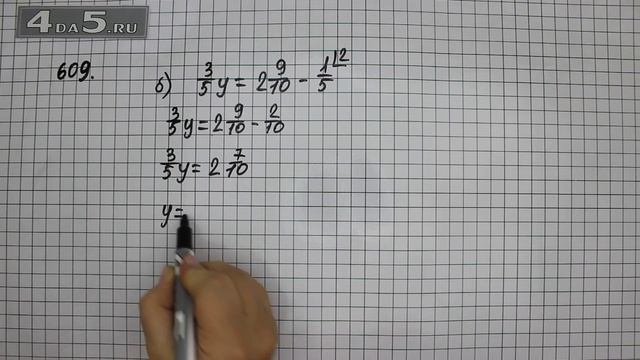 4DA5.RU
609.
б) 3/5 y = 2 9/10 - 1/5 ⌊2
3/5 y = 2 9/10 - 2/10
3/5 y = 2 7/10
y =